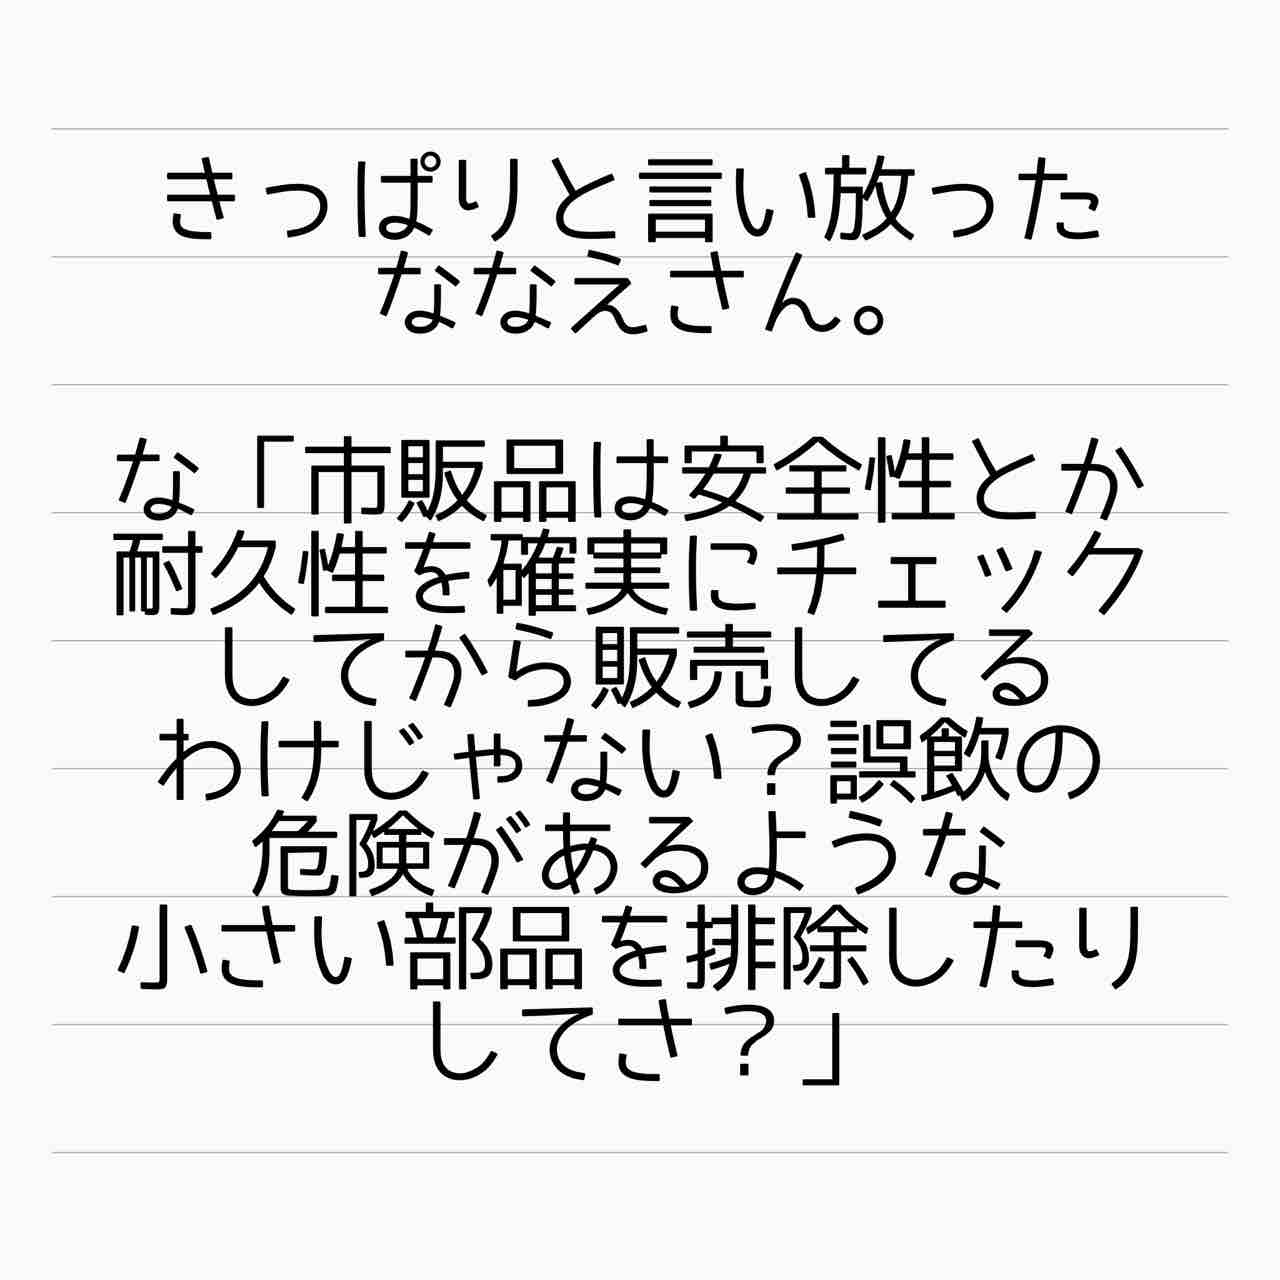 きっぱりと言い放った
ななえさん。
な「市販品は安全性とか
耐久性を確実にチェック
してから販売してる
わけじゃない？誤飲の
危険があるような
小さい部品を排除したり
してさ？」